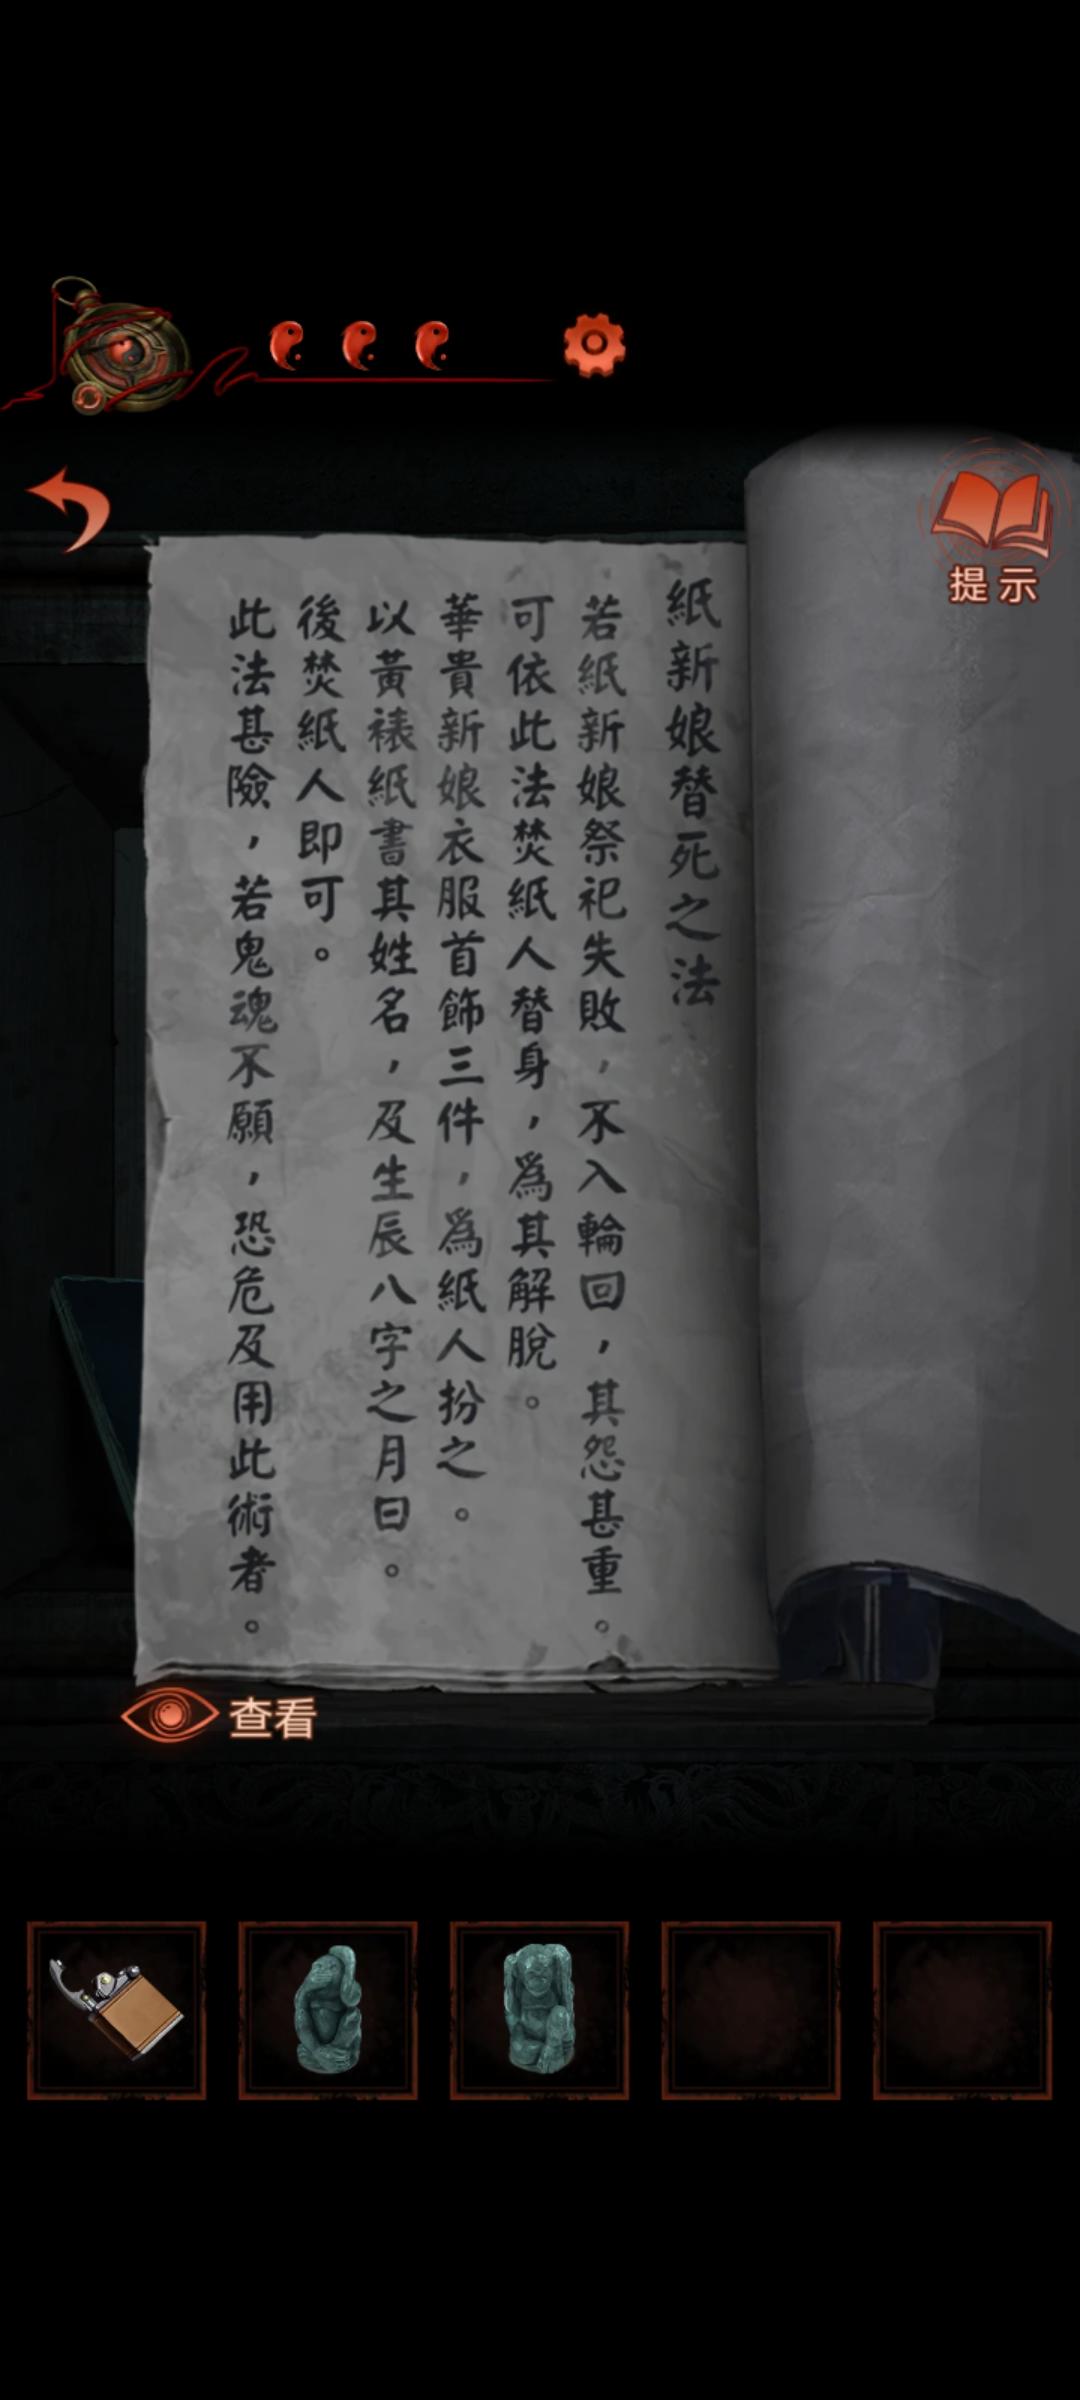 提示
紙新娘替死之法
若紙新娘祭祀失敗，不入輪回，其怨甚重。
可依此法焚紙人替身，爲其解脫。
華貴新娘衣服首飾三件，爲紙人扮之。
以黃裱紙書其姓名，及生辰八字之月日。
後焚紙人即可。
此法甚險，若鬼魂不願，恐危及用此術者。
查看